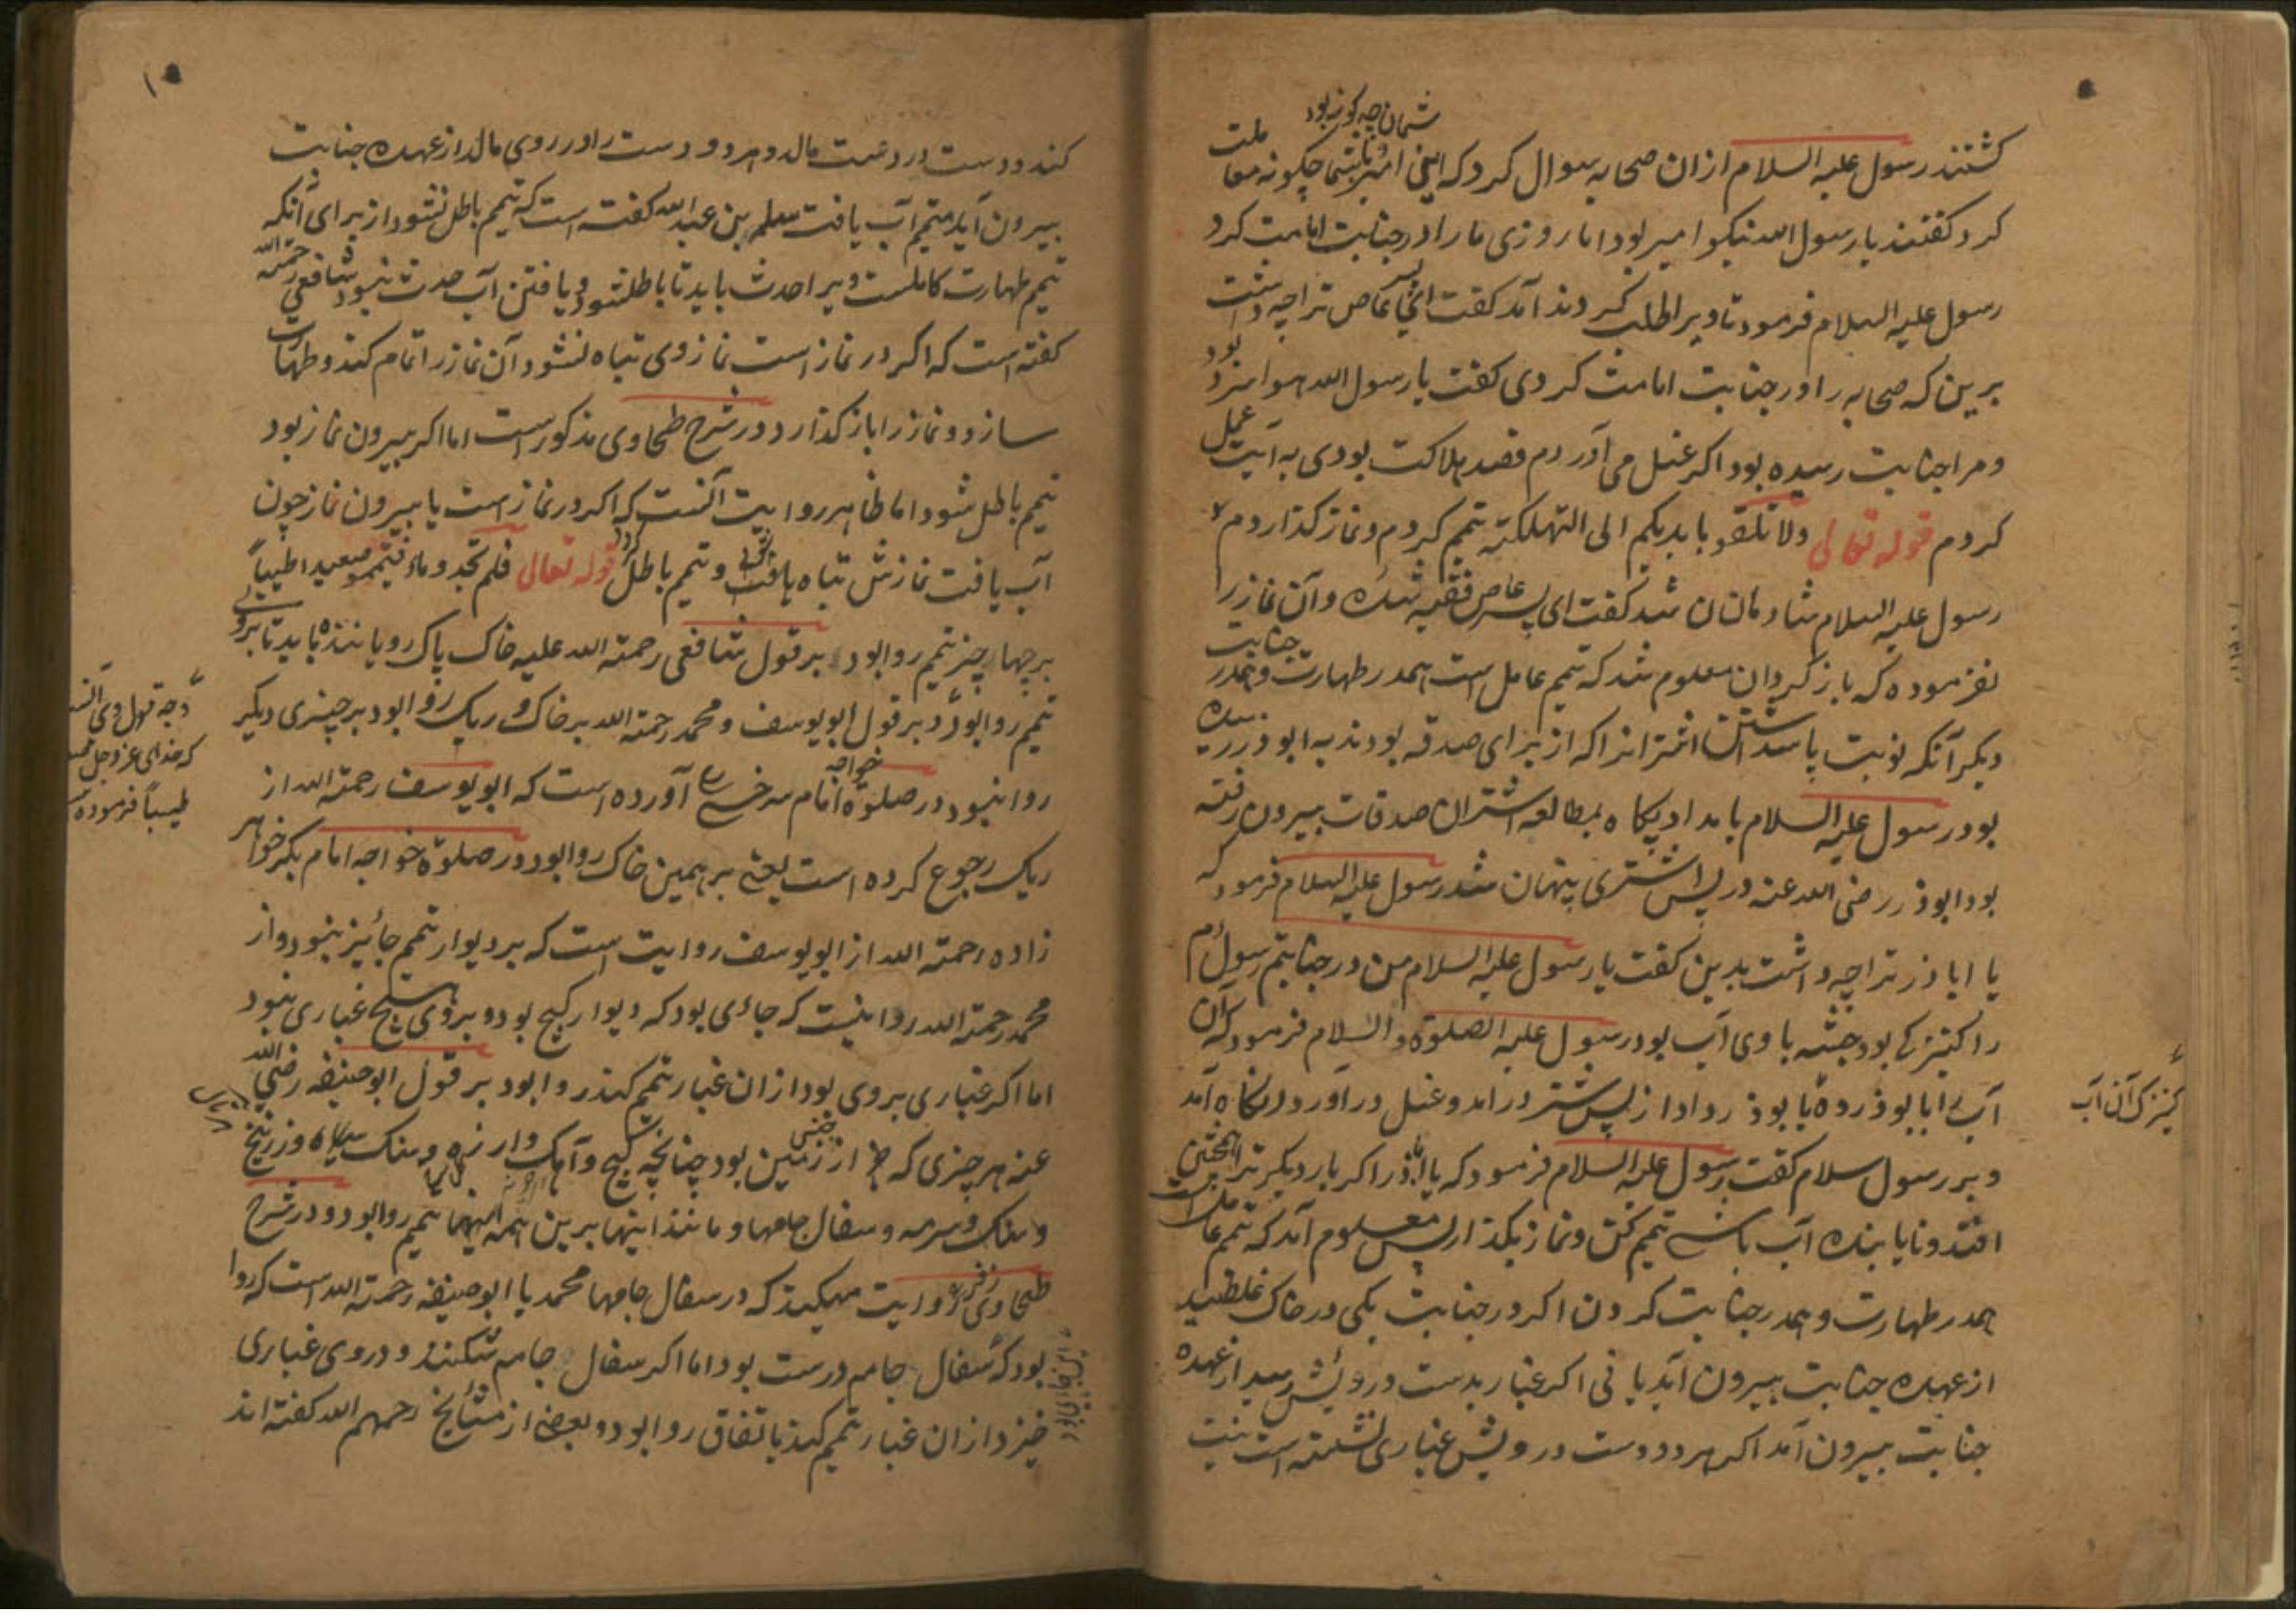 شمان چه کونه بود
کشتند رسول علیه السلام از ان صحابه سوال کرد که این امیر شما چکونه معاملت
کرد کفتند یا رسول الله نیکو امیر بود اما روزی ما را در جنابت امامت کرد
رسول علیه السلام فرمود تا ویرا طلب کردند آمد کفت ای عاص ترا چه داشت
برین که صحابه را در جنابت امامت کردی کفت یا رسول الله هوا سرد بود
و مرا جنابت رسیده بود اکر غسل می آوردم قصد هلاکت بودی به آیت عمل
کردم قوله تعالی ولا تلقو بایدیکم الی التهلکته تیمم کردم و نماز کذاردم
رسول علیه السلام شادمان شد کفت ای پسر عاص فقیه شده و آن نماز را
نفرموده که باز کردان معلوم شد که تیمم عامل است همدر طهارت و همدر جنابت
دیکر آنکه نوبت پاسداشتن اشترانرا که از برای صدقه بودند به ابوذر رسیده
بود رسول علیه السلام بامداد پکاه بمطالعه اشتران صدقات بیرون رفته
بود ابوذر رضی الله عنه در پس اشتری پنهان شد رسول علیه السلام فرمود که
یا اباذر ترا چه داشت بدین کفت یا رسول علیه السلام من در جنابتم رسول
را کنیزکی بود حبشه با وی آب بود رسول علیه الصلوة والسلام فرمود که آن
آب را بابوذر ده بابوذر داد از پس شتر در امد و غسل در آورد انکاه آمد
و بر رسول سلام کفت رسول علیه السلام فرمود که یا اباذر اکر بار دیکر ترا اینچنین
افتد و نایابنده آب باشی تیمم کن و نماز بکذار پس معلوم آمد که تیمم عامل است
همدر طهارت و همدر جنابت کردن اکر در جنابت یکی در خاک غلطید
از عهده جنابت بیرون آید یا نی اکر غبار بدست و رویش رسید از عهده
جنابت بیرون آمد اکر هر دو دست و رویش غباری نشسته است نیت
کنیزک آن آب
کند و دست در دست مالد و هر دو دست را در روی مالد از عهده جنابت
بیرون آید متیمم آب یافت معلم بن عبد الله کفته است که تیمم باطل نشود از برای آنکه
تیمم طهارت کاملست ویرا حدث باید تا باطلشود و یافتن آب حدث نبود شافعی رحمته الله
کفته است که اکر در نماز است نماز وی تباه نشود آن نماز را تمام کند و طهارت
سازد و نماز را باز کذارد در شرح طحاوی مذکور است اما اکر بیرون نماز بود
تیمم باطل شود اما ظاهر روایت آنست که اکر در نماز است یا بیرون نماز چون
آب یافت نمازش تباه یافت و تیمم باطل قوله تعالی فلم تجدوماء فتیمموصعیدا طیباً
بر چهار چیز تیمم روا بود بر قول شافعی رحمته الله علیه خاک پاک رویاننده باید تا بروی
تیمم روا بود و بر قول ابو یوسف و محمد رحمته الله بر خاک و ریک روا بود بر چیزی دیکر
روا نبود در صلوة خواجه امام سرخسی آورده است که ابو یوسف رحمته الله از
ریک رجوع کرده است یعنی بر همین خاک روا بود در صلوة خواجه امام بکر خواهر
زاده رحمته الله از ابو یوسف روایت است که بر دیوار تیمم جائیز نبود و از
محمد رحمته الله روا نیست که جاءی بود که دیوار کچ بود و بروی هیچ غباری نبود
اما اکر غباری بروی بود از ان غبار تیمم کند روا بود بر قول ابو حنیفه رضی الله
عنه هر چیزی که از جنس زمین بود چنانچه کچ و آهک و وسنک سیاه و زرنیخ
و سنک سرمه و سفال جامها و مانند اینها برین همه اینها تیمم روا بود و در شرح
طحاوی زفر روایت میکند که در سفال جامها محمد با ابو حنیفه رحمته الله است که روا
بود که سفال جامه درست بود اما اکر سفال جامه شکند و در وی غباری
خیزد از ان غبار تیمم کند باتفاق روا بود و بعضی از مشائخ رحمهم الله کفته اند
وجه قول وی آنست
که خدای عز و جل
طیباً فرموده